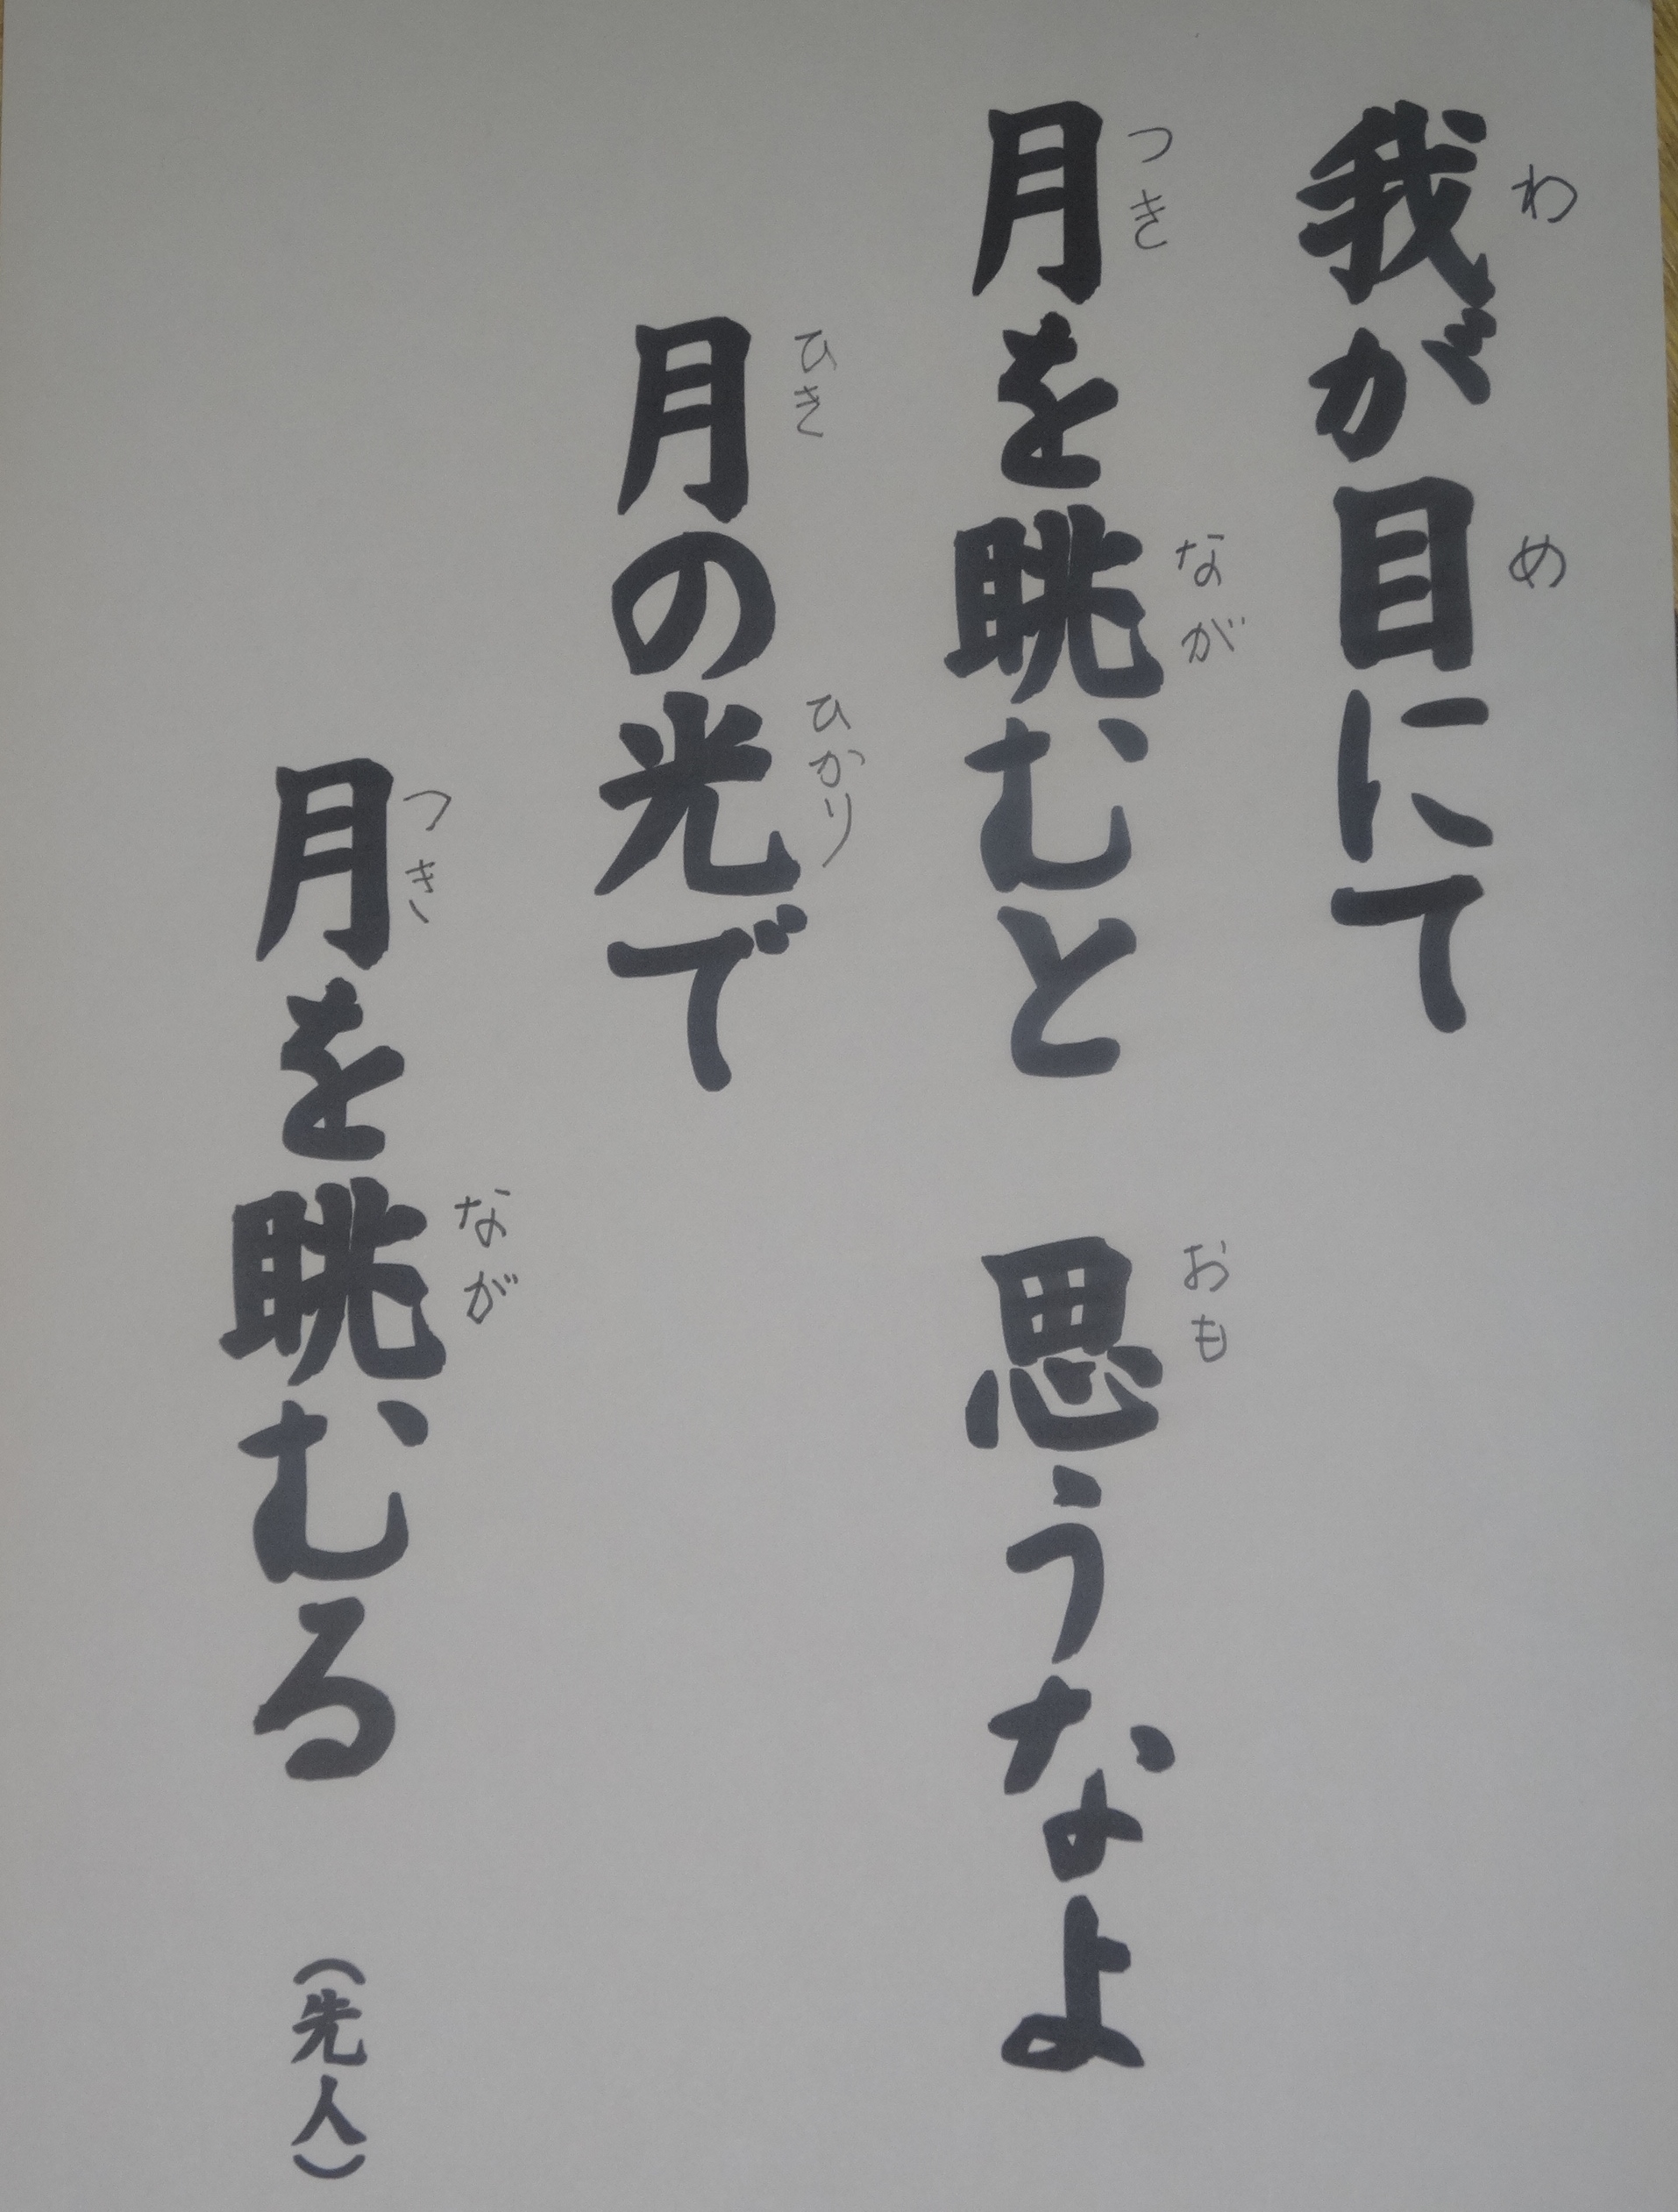 我が目にて
わ め
月を眺むと 思うなよ
つき なが おも
月の光で
ひき ひかり
月を眺むる (先人)
つき なが